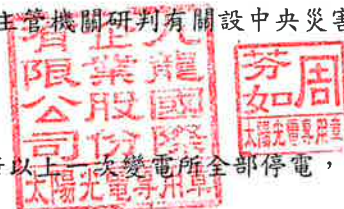 主管機關研判有關設中央災害
九龍國際
企業股份
有限公司
太陽光電專用章
周
芬如
太陽光電專用章
以上一次變電所全部停電，